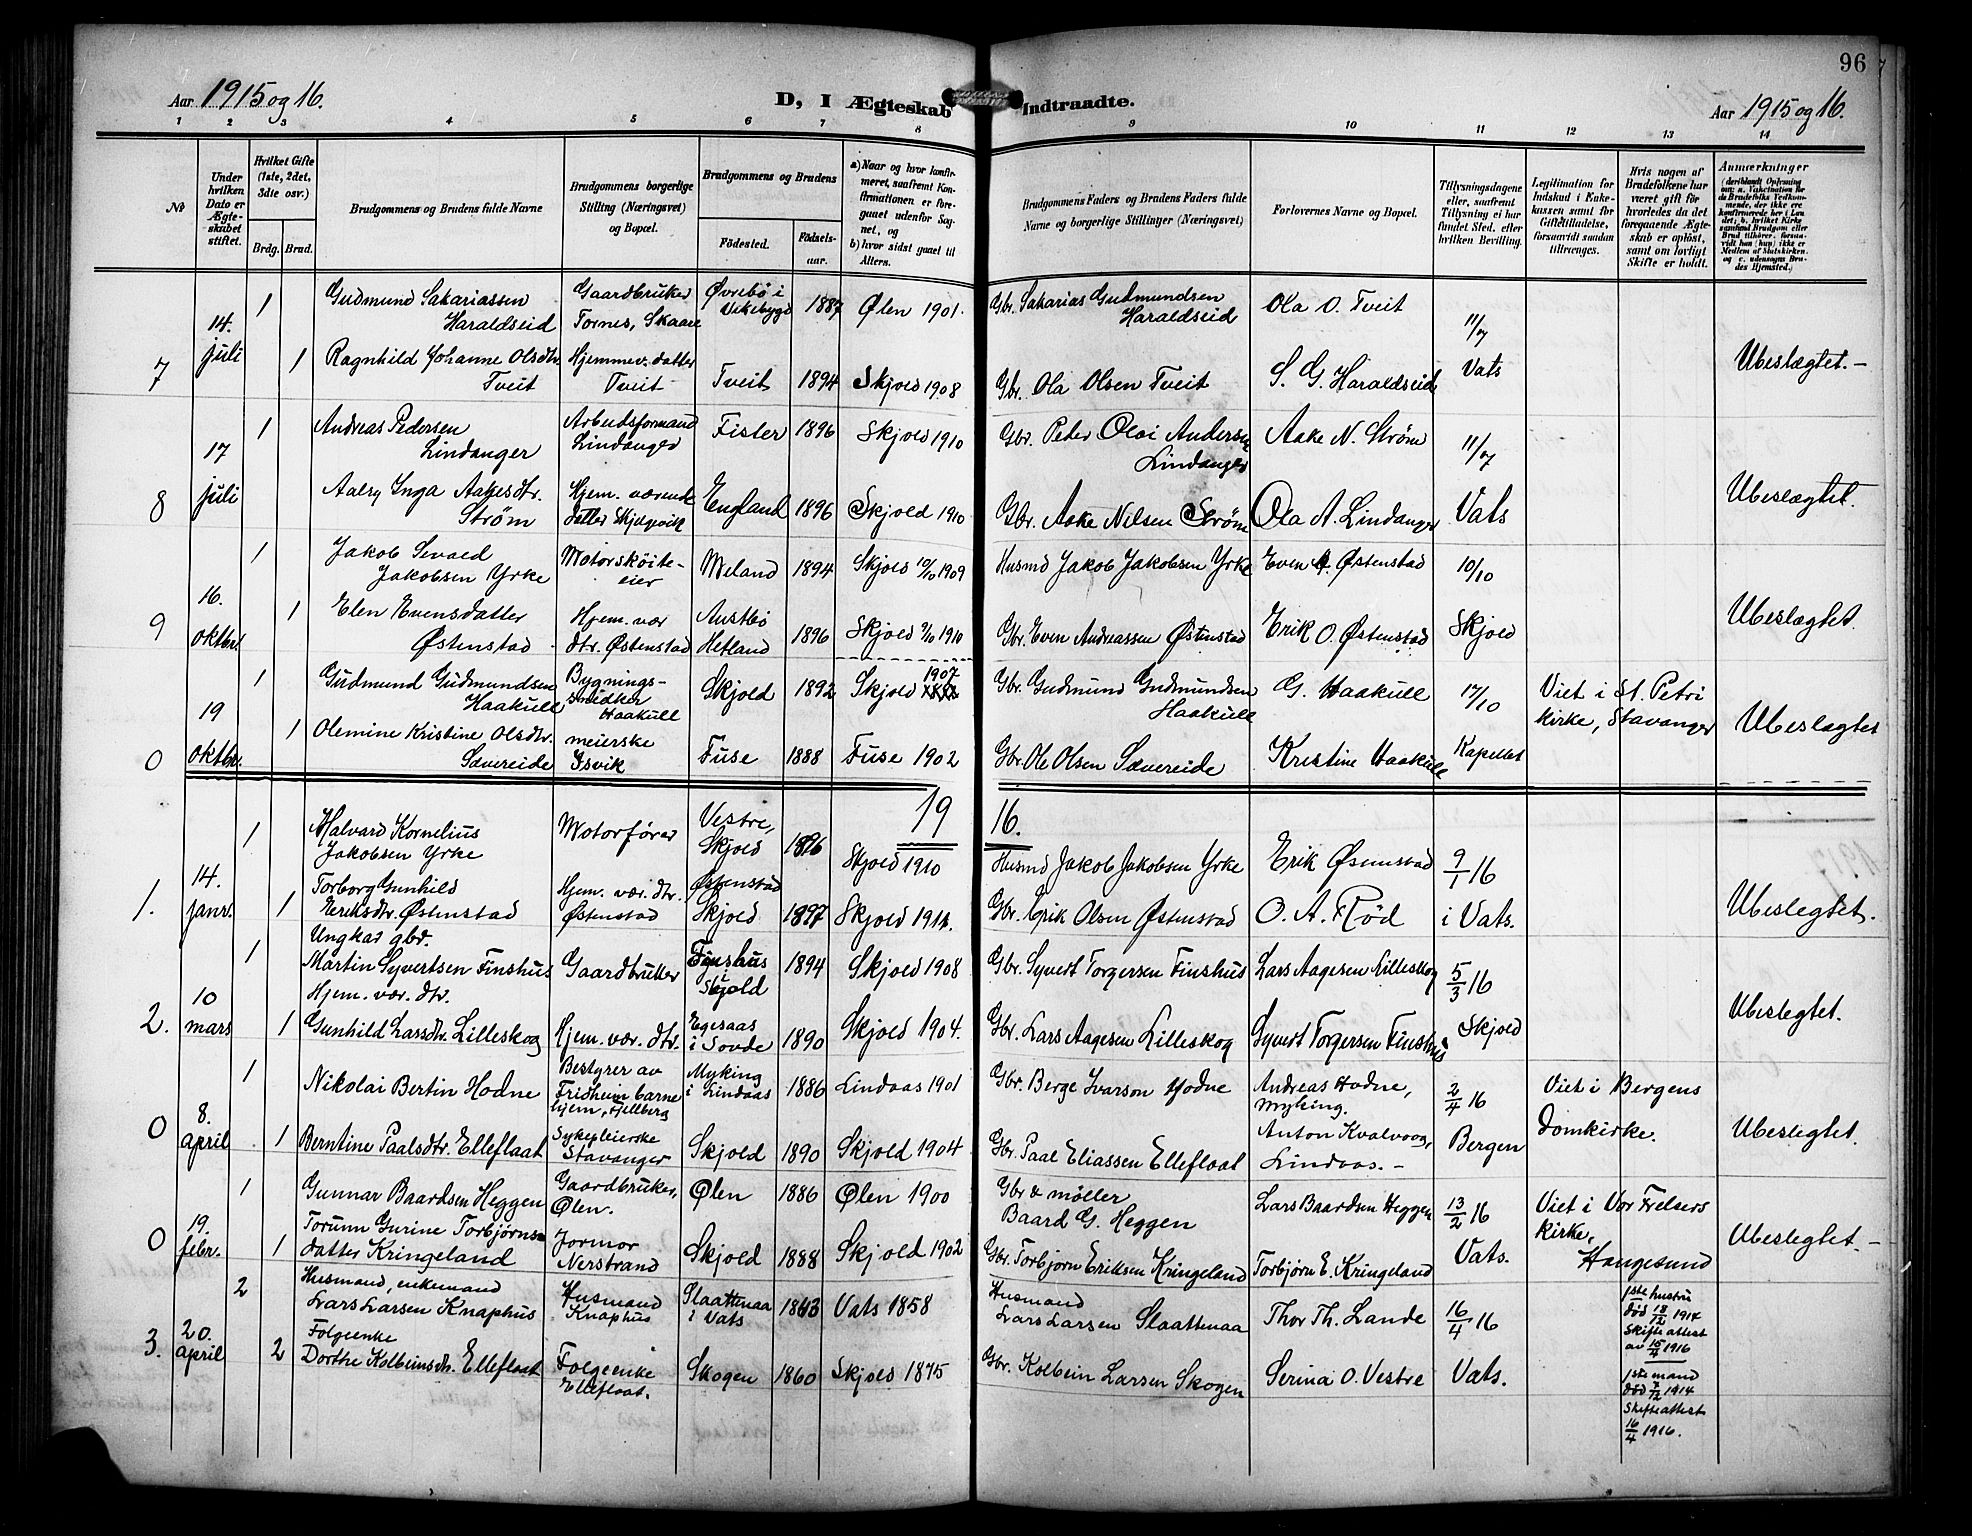 96
Aar 1915 og 16.
D, I Ægteskab Indtraadte.
Aar 1915 og 16.
1 2 3 4 5 6 7 8 9 10 11 12 13 14
No
Under hvilken Dato er Ægteskabet stiftet.
Hvilket Gifte (1ste, 2det, 3die osv.)
Brdg. Brud.
Brudgommens og Brudens fulde Navne
Brudgommens borgerlige Stilling (Næringsvei) og Bopæl.
Brudgommens og Brudens
Födested.
Födselsaar.
a) Naar og hvor konfirmeret, saafremt Konfirmationen er foregaaet udenfor Sognet, og
b) hvor sidst gaaet til Alters.
Brudgommens Faders og Brudens Faders fulde Navne og borgerlige Stillinger (Næringsvei)
Forlovernes Navne og Bopæl.
Tillysningsdagene eller, saafremt Tillysning ei har fundet Sted, efter hvilken Bevilling.
Legitimation for Indskud i Enkekassen samt for Giftetilladelse, forsaavidt saadan tiltrænges.
Hvis nogen af Brudefolkene har været gift för hvorledes da det foregaaende Ægteskab er oplöst, samt om lovligt Skifte er holdt.
Anmærkninger
7
14. juli
1 Gudmund Sakariassen Haraldseid
Gaardbruker Tornes, Skaare
Øvrebö i Vikebygd 1887 Ølen 1901.
Gbr. Sakarias Gudmundsen Haraldseid
Ola O. Tveit
11/7
1 Ragnhild Johanne Olsdtr. Tveit
Hjemmev. datter Tveit
Tveit 1894 Skjold 1908
Gbr. Ola Olsen Tveit
S. G. Haraldseid
Vats
Ubeslægtet.-
8
17 juli
1 Andreas Pedersen Lindanger
Arbeidsformand Lindanger
Fister 1896 Skjold 1910
Gbr. Peder Olai Andersen Lindanger
Aake N. Strøm
11/7
Inga Aakesdtr. Strøm
Hjem. værende datter
England 1896 Skjold 1910
Gbr. Aake Nilsen Strøm
Ola A. Lindanger
Vats
Ubeslægtet.
9
16. oktbr.
1 Jakob Sevald Jakobsen Yrke
Motorsköite-eier
Meland 1894 Skjold 10/10 1909
Husmd Jakob Jakobsen Yrke
Even A. Østenstad
10/10
1 Elen Evensdatter Østenstad
Hjem. vær dtr. Østenstad
Austbö Hetland 1896 Skjold 1910
Gbr. Even Andreassen Østenstad
Erik O. Østenstad
Skjold
Ubeslægtet.
0
19 oktbr.
1 Gudmund Gudmundsen Haakull
Bygnings-snidker Haakull
Skjold 1892 Skjold 1907
Gbr. Gudmund Gudmundsen Haakull
G. Haakull
17/10
Viet i St. Petri kirke, Stavanger
1 Olemine Kristine Olsdtr. Sævereide
meierske Isvik
Fuse 1888 Fuse 1902
Gbr. Ole Olsen Sævereide
Kristine Haakull
Kapellet
Ubeslægtet
1916.
1.
14. janr.
1 Halvard Kornelius Jakobsen Yrke
Motorfører
Vestre, Skjold 1896 Skjold 1910
Husmd Jakob Jakobsen Yrke
Erik Østenstad
9/1 16
1 Torborg Gunhild Eriksdtr. Østenstad
Hjem. vær. dtr. Østenstad
Østenstad Skjold 1897 Skjold 1911.
Gbr. Erik Olsen Østenstad
O. A. Rød
i Vats.
Ubeslegtet.
2.
10 mars
1 Ungkar gbr. Martin Syvertsen Finshus
Gaardbruker
Finshus i Skjold 1894 Skjold 1908
Gbr. Syvert Torgersen Finshus
Lars Aagesen Lilleskog
5/3 16
1 Hjem. vær. dtr. Gunhild Larsdtr. Lilleskog
Hjem. vær. dtr.
Egesaas i Sovde 1890 Skjold 1904.
Gbr. Lars Aagesen Lilleskog
Syvert Torgersen Finshus
Skjold
Ubeslegtet.
0
8. april
1 Nikolai Bertin Hodne
Bestyrer av Fridheim barnehjem, Fjellberg
Myking i Lindaas 1886 Lindaas 1901
Gbr. Berge Ivarson Hodne
Andreas Hodne, Myking.
2/4 16
Viet i Bergens Domkirke.
1 Berntine Paalsdtr. Elleflaat
Sykepleierske Stavanger
Skjold 1890 Skjold 1904
Gbr. Paal Eliassen Elleflaat
Anton Kvalvaag, Lindaas.-
Bergen
Ubeslegtet.
0
19. febr.
1 Gunnar Baardsen Heggen
Gaardbruker, Ølen.
Ølen 1886 Ølen 1900
Gbr & möller Baard G. Heggen
Lars Baardsen Heggen
13/2 16
Viet i Vor Frelsers kirke, Haugesund
1 Torunn Gurine Torbjørnsdatter Kringeland
Jormor Nerstrand
Skjold 1888 Skjold 1902
Gbr. Torbjørn Eriksen Kringeland
Torbjørn E. Kringeland
Vats.
Ubeslegtet.-
3.
20. april
2 Husmand, enkemand Lars Larsen Knaphus
Husmand Knaphus
Slaattenaa i Vats 1843 Vats 1858
Husmand Lars Larsen Slaattenaa
Thor Th. Lande
16/4 16
1ste hustru död 18/12 1914 Skifteattest av 15/4 1916
2 Følgeenke Dorthe Kolbeinsdtr. Elleflaat
Følgeenke Elleflaat.
Skogen 1860 Skjold 1875
Gbr. Kolbein Larsen Skogen
Serina O. Vestre
Vats.
1ste mand död 7/12 1914 Skifteattest 16/4 1916.